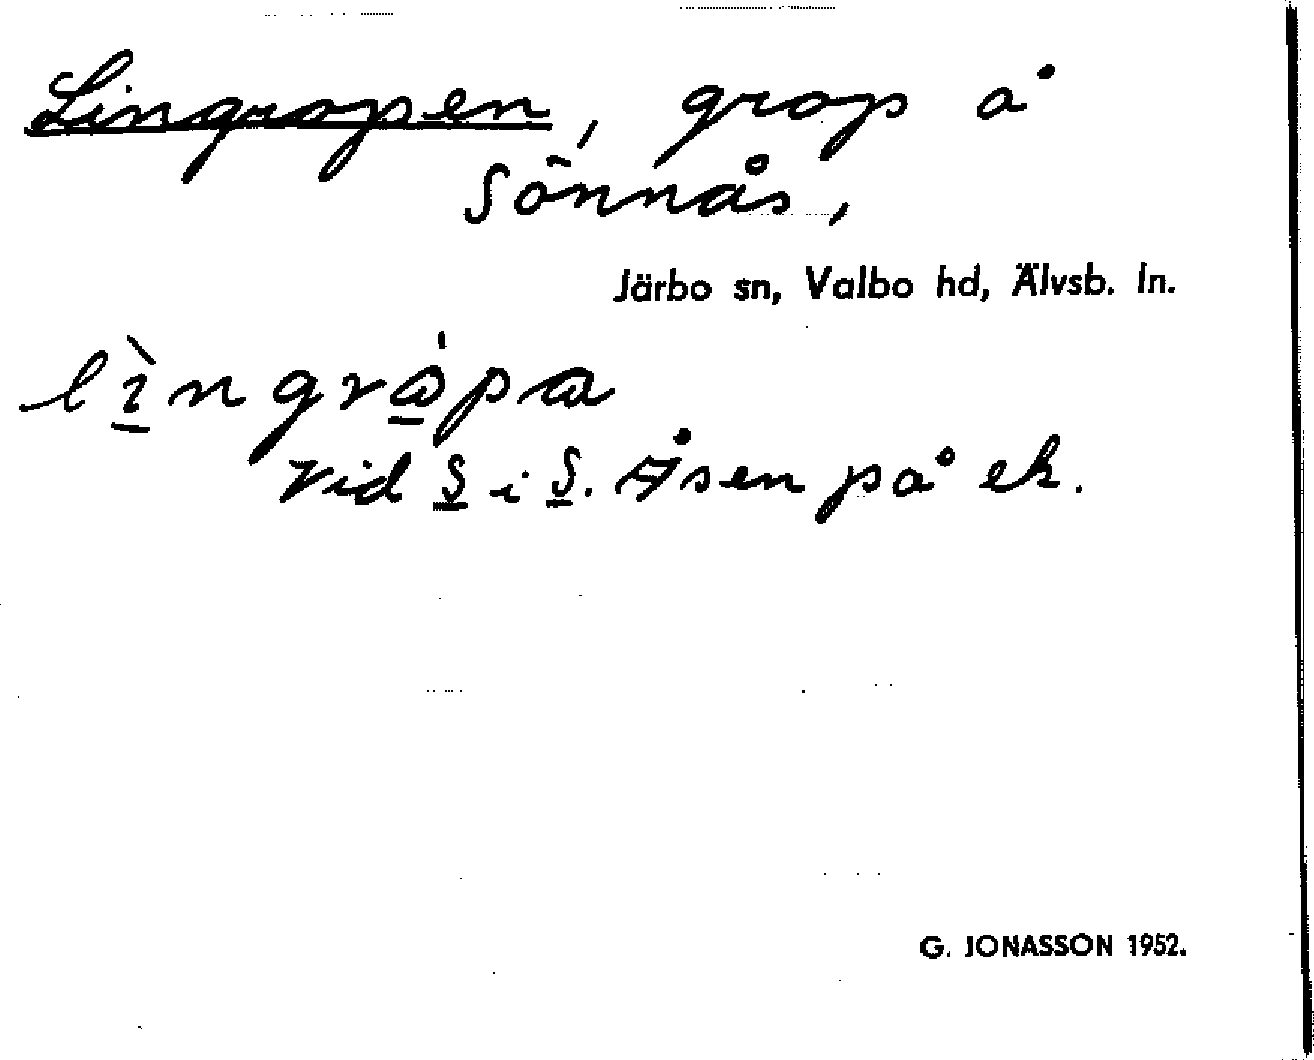 Lingropen, grop å
Sönnås,
Järbo sn, Valbo hd, Älvsb. ln.
lìngråpa
Vid S i S. Åsen på ek.
G. JONASSON 1952.